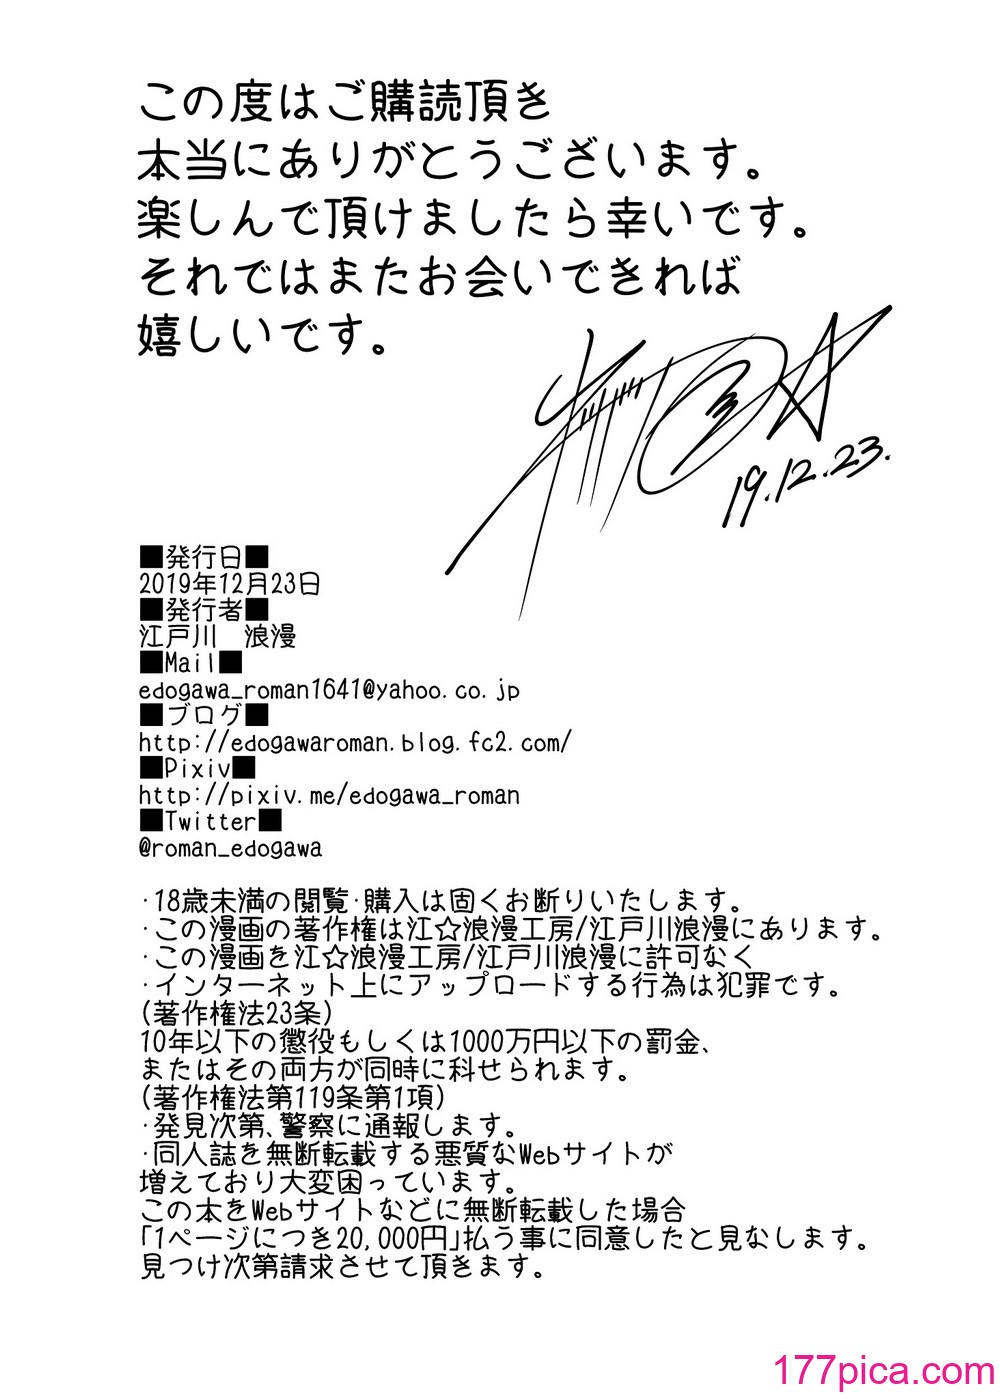 この度はご購読頂き
本当にありがとうございます。
楽しんで頂けましたら幸いです。
それではまたお会いできれば
嬉しいです。
19.12.23.
■発行日■
2019年12月23日
■発行者■
江戸川　浪漫
■Mail■
edogawa_roman1641@yahoo.co.jp
■ブログ■
http://edogawaroman.blog.fc2.com/
■Pixiv■
http://pixiv.me/edogawa_roman
■Twitter■
@roman_edogawa
·18歳未満の閲覧·購入は固くお断りいたします。
·この漫画の著作権は江☆浪漫工房/江戸川浪漫にあります。
·この漫画を江☆浪漫工房/江戸川浪漫に許可なく
·インターネット上にアップロードする行為は犯罪です。
(著作権法23条)
10年以下の懲役もしくは1000万円以下の罰金、
またはその両方が同時に科せられます。
(著作権法第119条第1項)
·発見次第、警察に通報します。
·同人誌を無断転載する悪質なWebサイトが
増えており大変困っています。
この本をWebサイトなどに無断転載した場合
「1ページにつき20,000円」払う事に同意したと見なします。
見つけ次第請求させて頂きます。
177pica.com